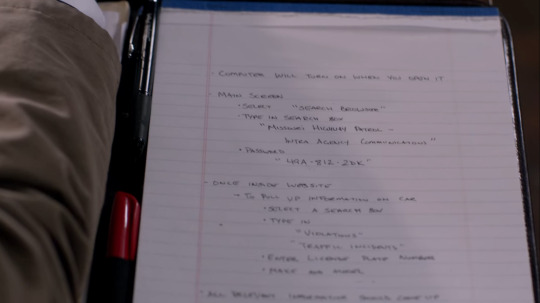 · COMPUTER WILL TURN ON WHEN YOU OPEN IT
· MAIN SCREEN
· SELECT "SEARCH BROWSER"
· TYPE IN SEARCH BOX
"MISSOURI HIGHWAY PATROL -
INTRA AGENCY COMMUNICATIONS"
· PASSWORD
"49A-812-2DK"
· ONCE INSIDE WEBSITE
· TO PULL UP INFORMATION ON CAR
· SELECT A SEARCH BOX
· TYPE IN
"VIOLATIONS"
"TRAFFIC INCIDENTS"
· ENTER LICENSE PLATE NUMBER
· MAKE AND MODEL
· ALL RELEVANT INFORMATION SHOULD COME UP